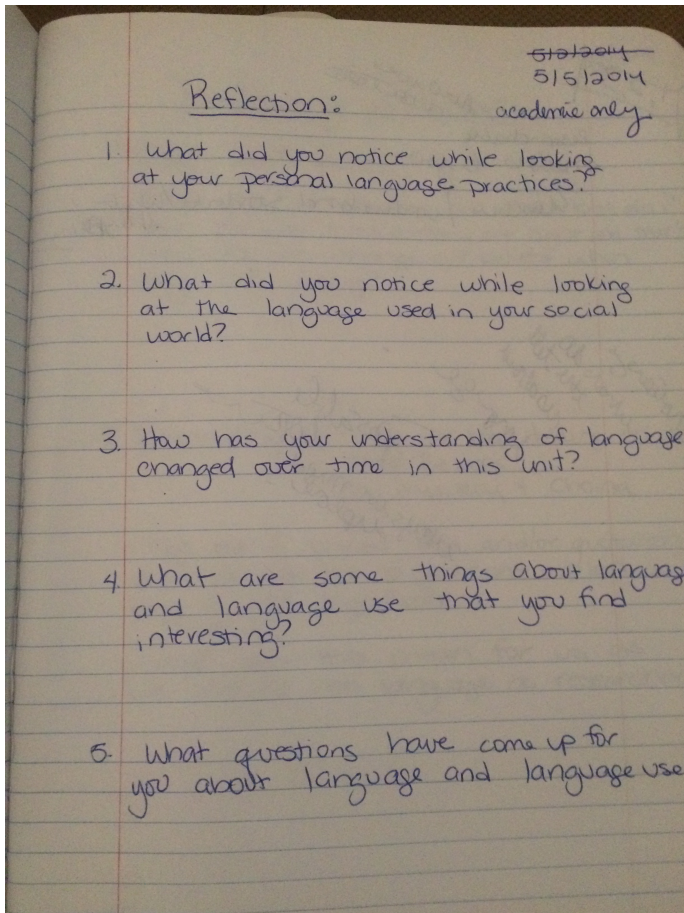 5/2/2014
5/5/2014
Reflection:
academic only
1. What did you notice while looking
at your personal language practices?
2. What did you notice while looking
at the language used in your social
world?
3. How has your understanding of language
changed over time in this unit?
4. What are some things about languag
and language use that you find
interesting?
5. What questions have come up for
you about language and language use